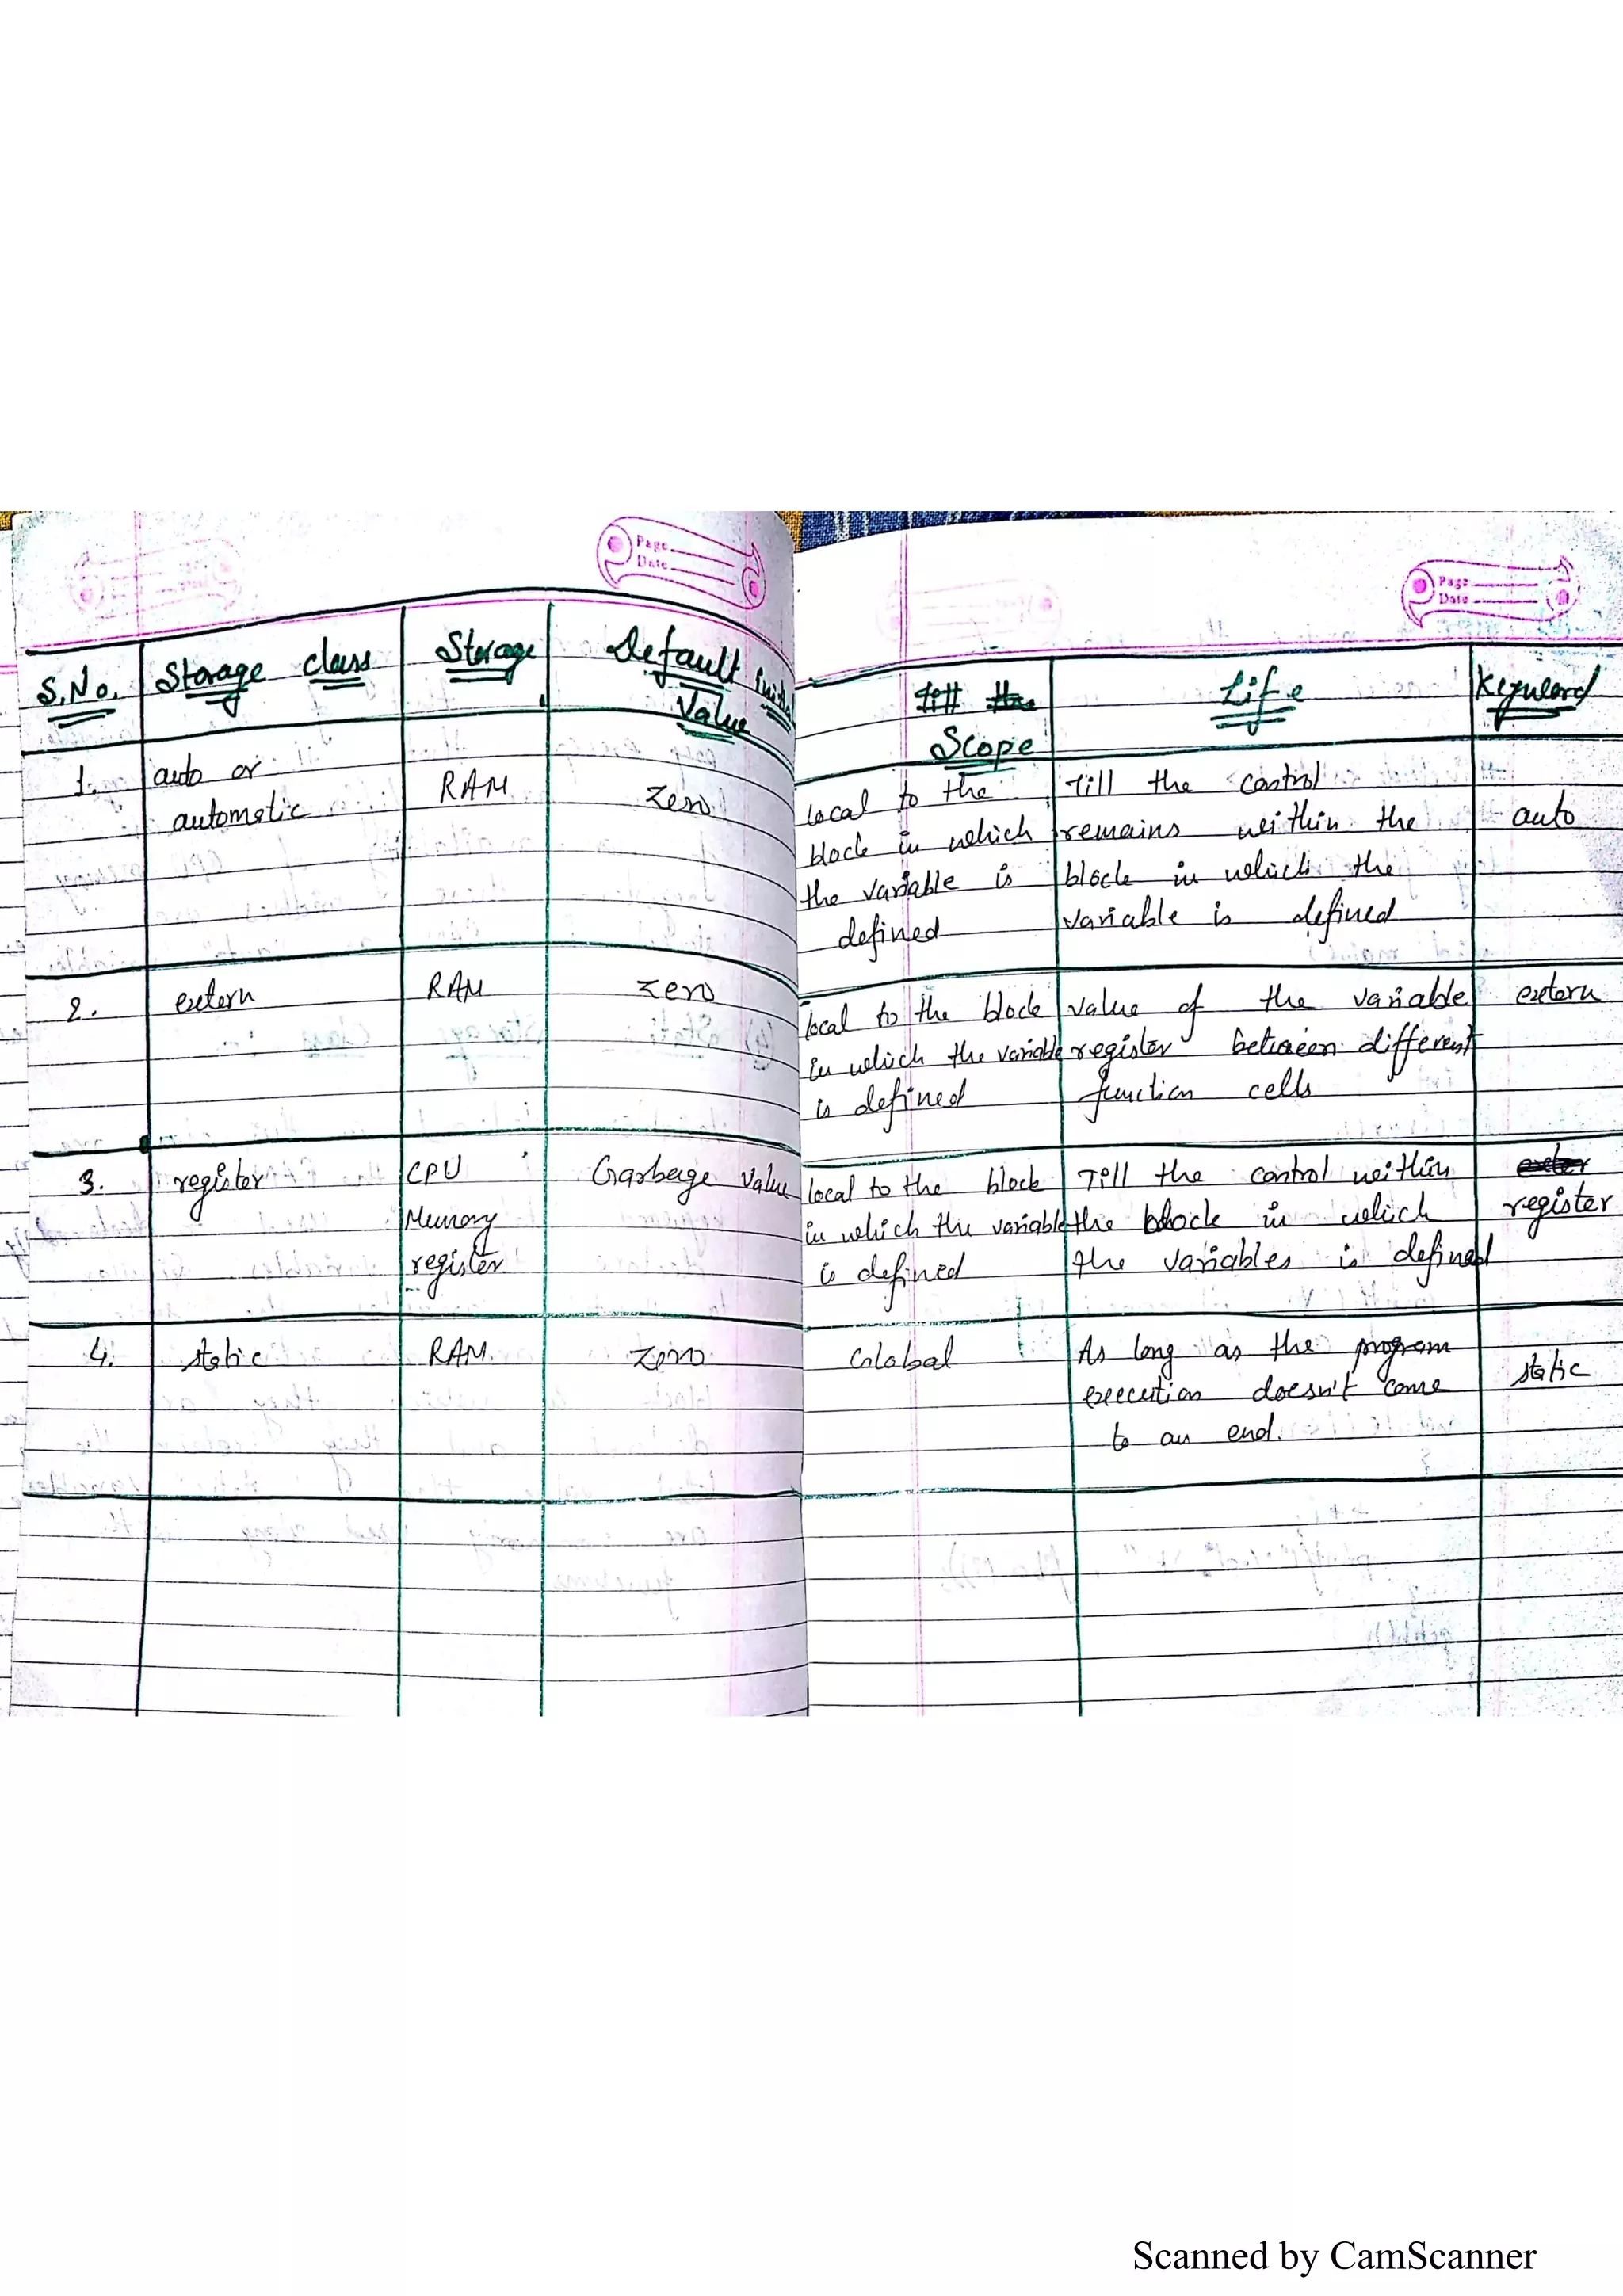 Page
Date
Page
Date
S.No. Storage class Storage Default initial Value
Scope Life Keyword
1. auto or automatic RAM Zero
local to the block in which the variable is defined
Till the control remains within the block in which the variable is defined
auto
2. extern RAM Zero
local to the block in which the variable is defined
value of the variable register between different function cells
extern
3. register CPU Memory register Garbage Value
local to the block in which the variable is defined
Till the control within the block in which the variables is defined
register
4. static RAM Zero
Global
As long as the program execution doesn't come to an end.
static
Scanned by CamScanner